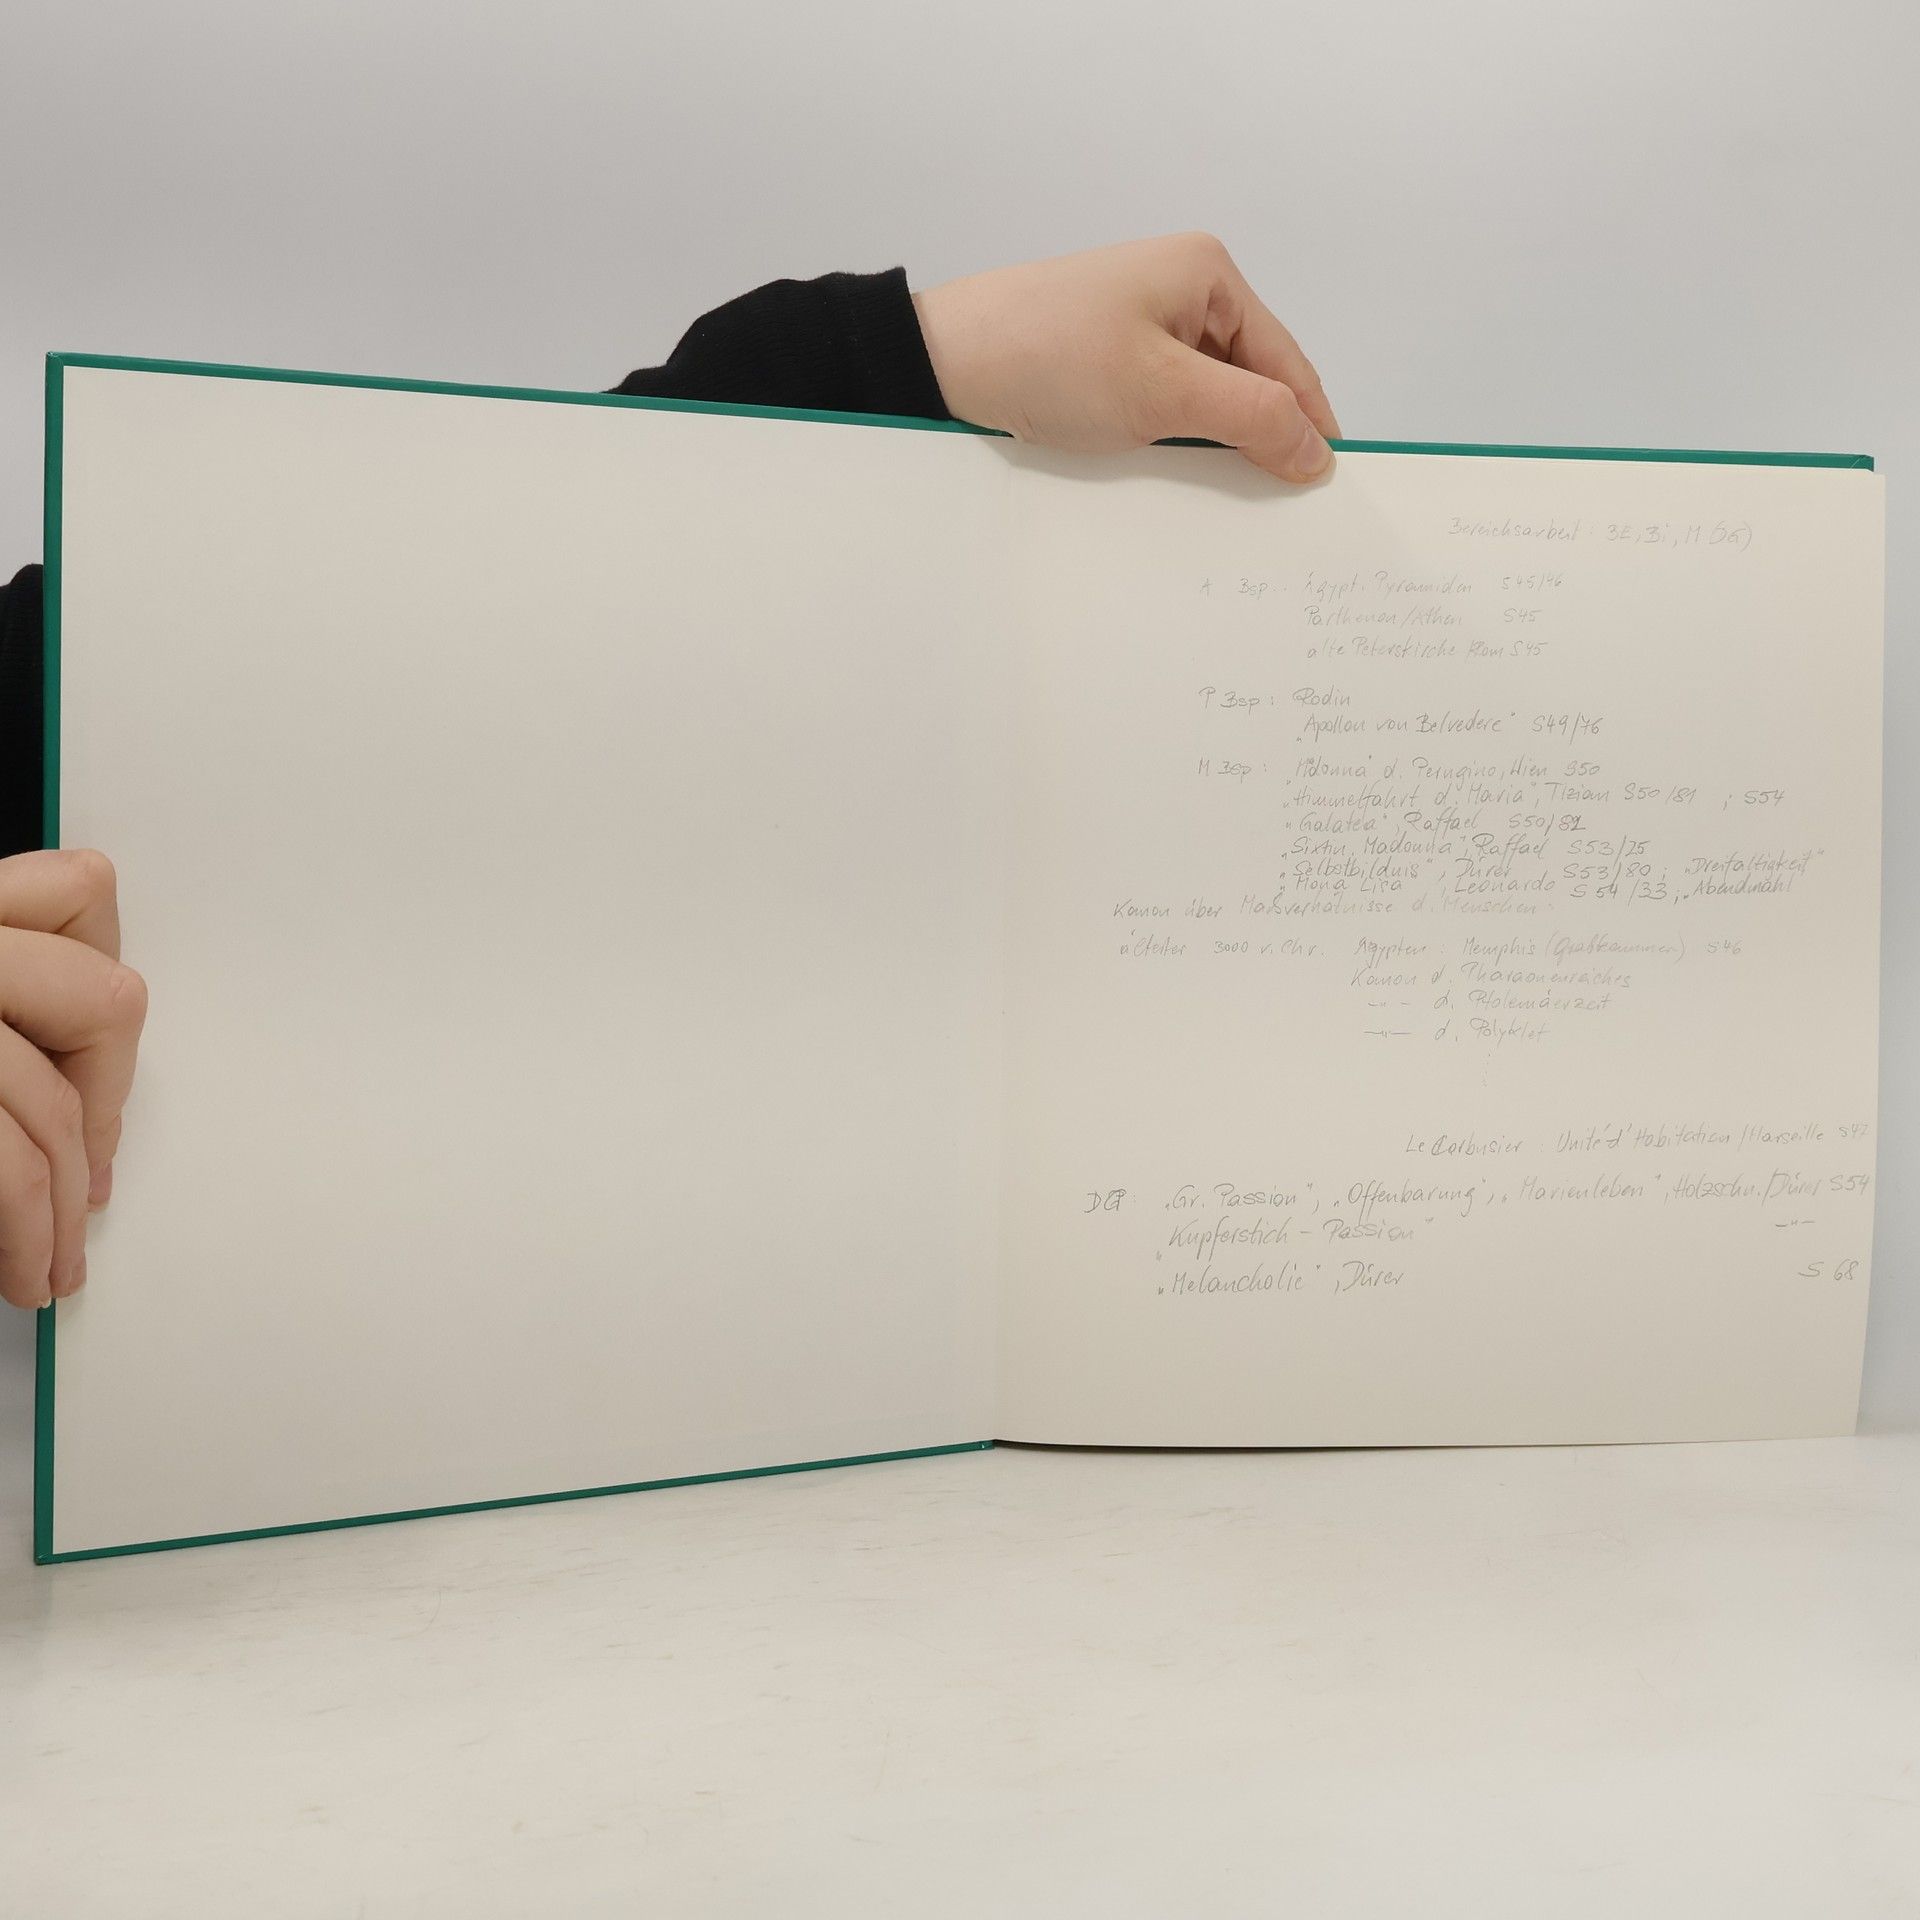 Bereichsarbeit : BE, Bi, M (DG)
A Bsp.. Ägypt. Pyramiden S45/46
Parthenon/Athen S45
alte Peterskirche Rom S45
P Bsp : Rodin
„Apollon von Belvedere" S49/76
M Bsp : „Madonna" d. Perugino, Wien S50
„Himmelfahrt d. Maria", Tizian S50/81 ; S54
„Galatea", Raffael S50/82
„Sixtin. Madonna", Raffael S53/25
„Selbstbildnis", Dürer S53/80 ; „Dreifaltigkeit"
„Mona Lisa", Leonardo S 54/33 ; „Abendmahl
Kanon über Maßverhätnisse d. Menschen :
ältester 3000 v. Chr. Ägypten : Memphis (Grabkammern) S46
Kanon d. Pharaonenreiches
—"— d. Ptolemäerzeit
—"— d. Polyklet
Le Corbusier : Unité d'Habitation /Marseille S47
„Gr. Passion", „Offenbarung", „Marienleben", Holzschn./Dürer S54
„Kupferstich – Passion" —"—
„Melancholie", Dürer S 68